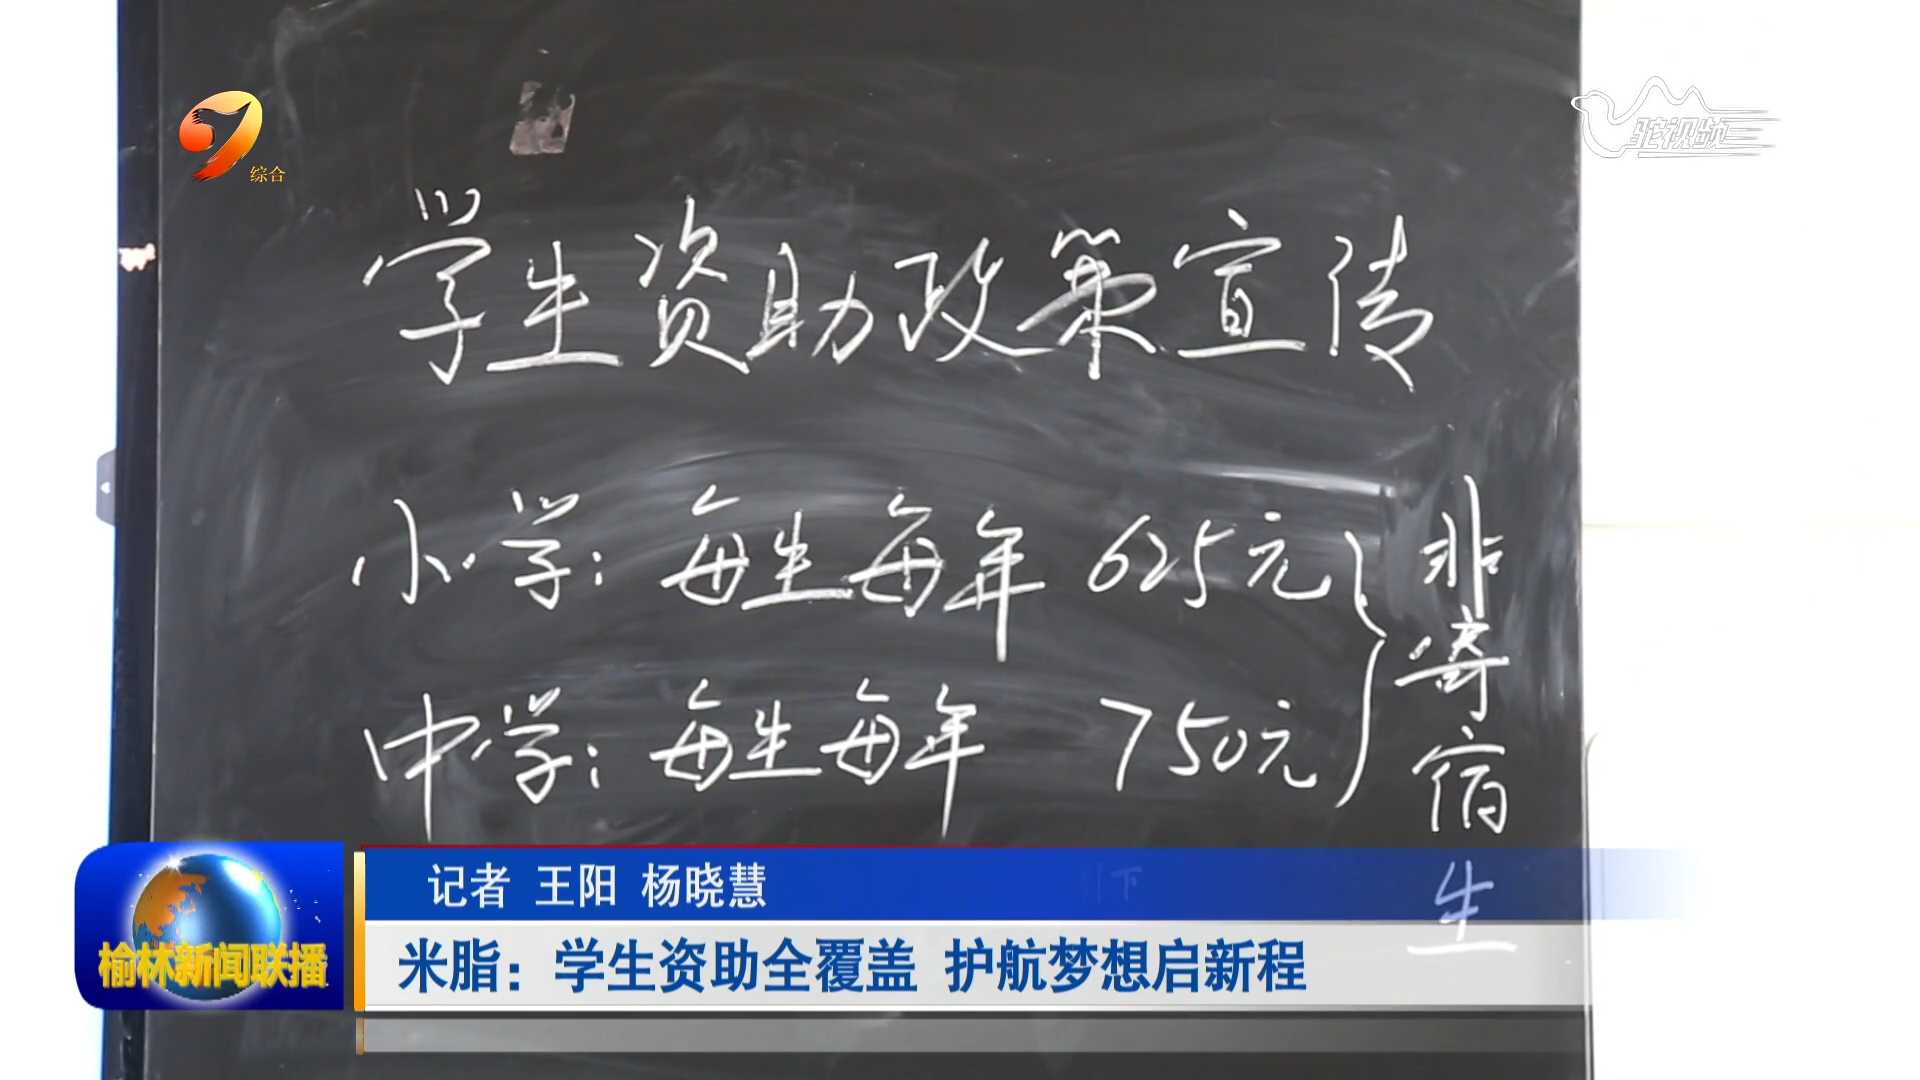 综合
驼视频
学生资助政策宣传
小学：每生每年 625元
中学：每生每年 750元
非寄宿生
记者 王阳 杨晓慧
榆林新闻联播
米脂：学生资助全覆盖 护航梦想启新程